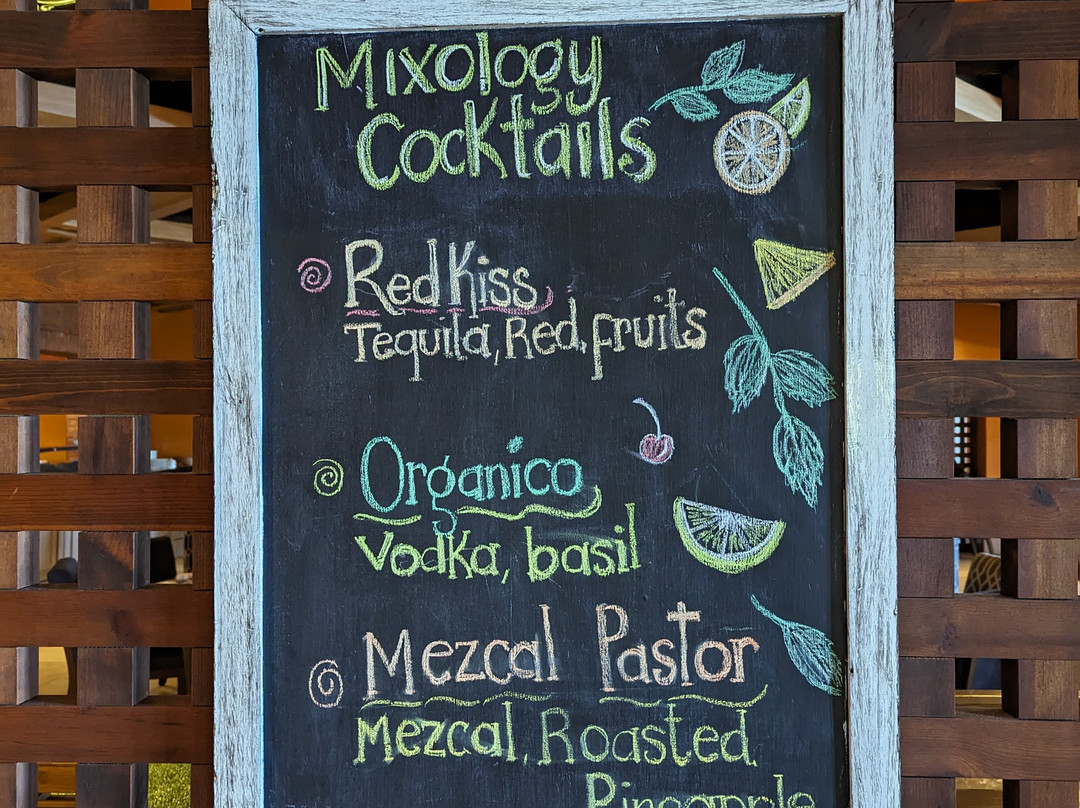 Mixology
Cocktails
Red Kiss
Tequila, Red, fruits
Organico
Vodka, basil
Mezcal Pastor
Mezcal, Roasted
Pineapple